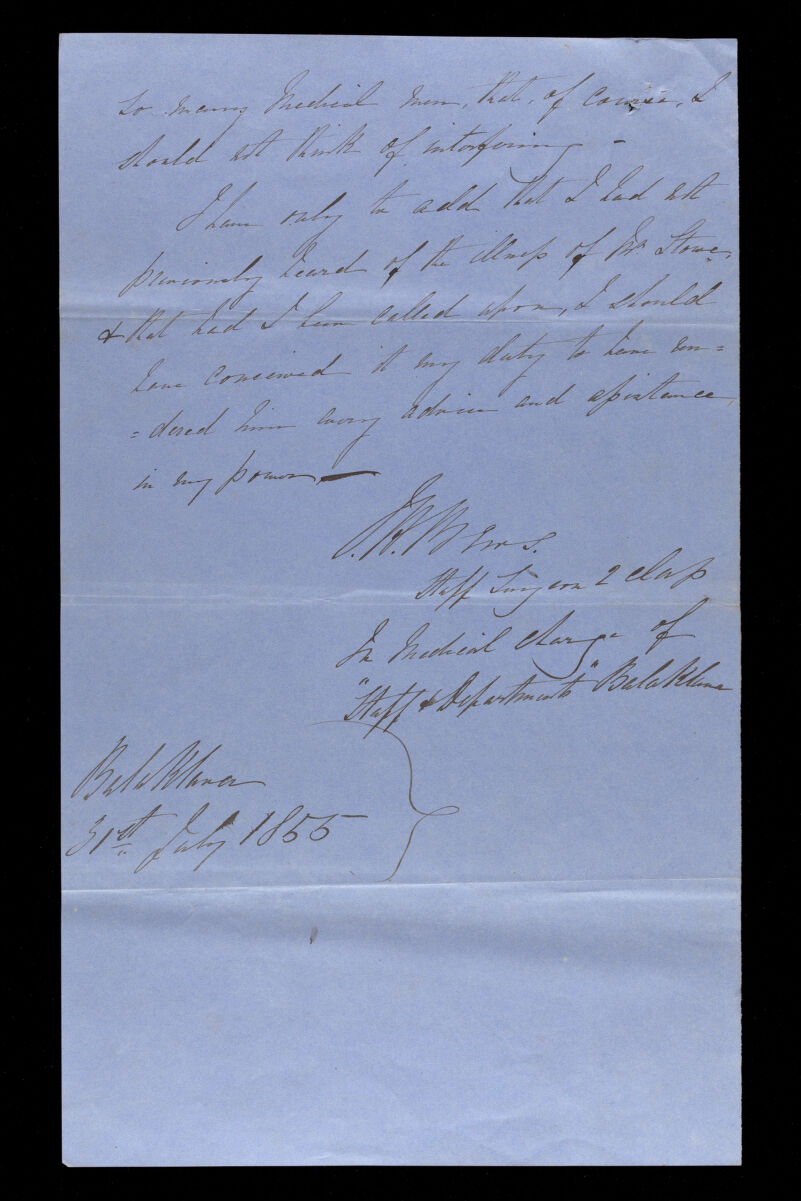 so many Medical men, that, of course, I
should not think of interfering –
I have only to add that I had not
previously heard of the illness of Mr Stowe,
& that had I been called upon, I should
have conceived it my duty to have ren=
=dered him every advice and assistance,
in my power —
Staff Surgeon 2 Class
In Medical charge of
"Staff & Departments" Balaklava
Balaklava
31st July 1855